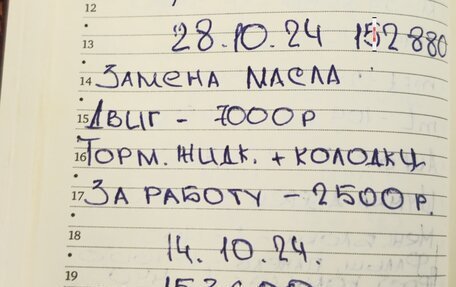 12
13 28.10.24 152880
14 ЗАМЕНА МАСЛА
15 ДВИГ - 7000Р
16 ТОРМ. ЖИДК. + КОЛОДКИ
17 ЗА РАБОТУ - 2500Р.
18 14.10.24.
19